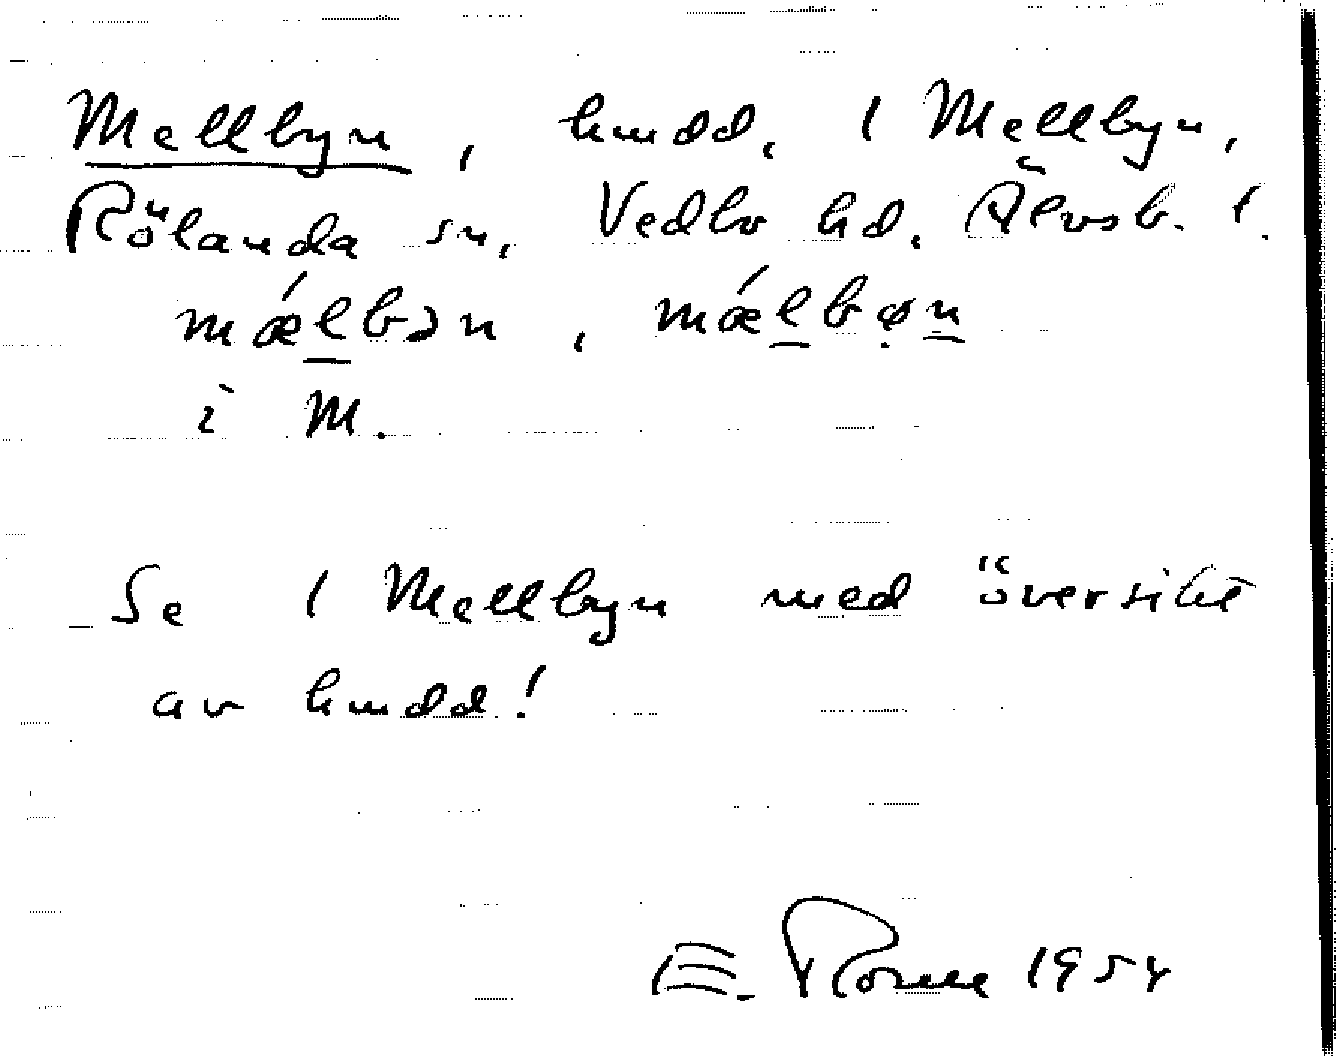 Mellbyn, hmdd, 1 Mellbyn,
Rölanda sn, Vedbo hd. Älvsb. l.
mǽlbən, mǽlbøn
i M.
Se 1 Mellbyn med översikt
av hmdd!
E. 1954